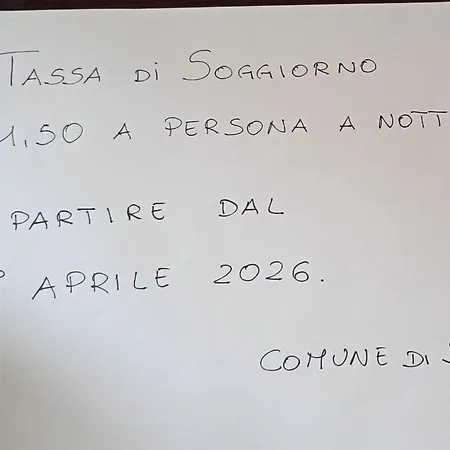 TASSA di SOGGIORNO
1,50 A PERSONA A NOTT
PARTIRE DAL
APRILE 2026.
COMUNE DI